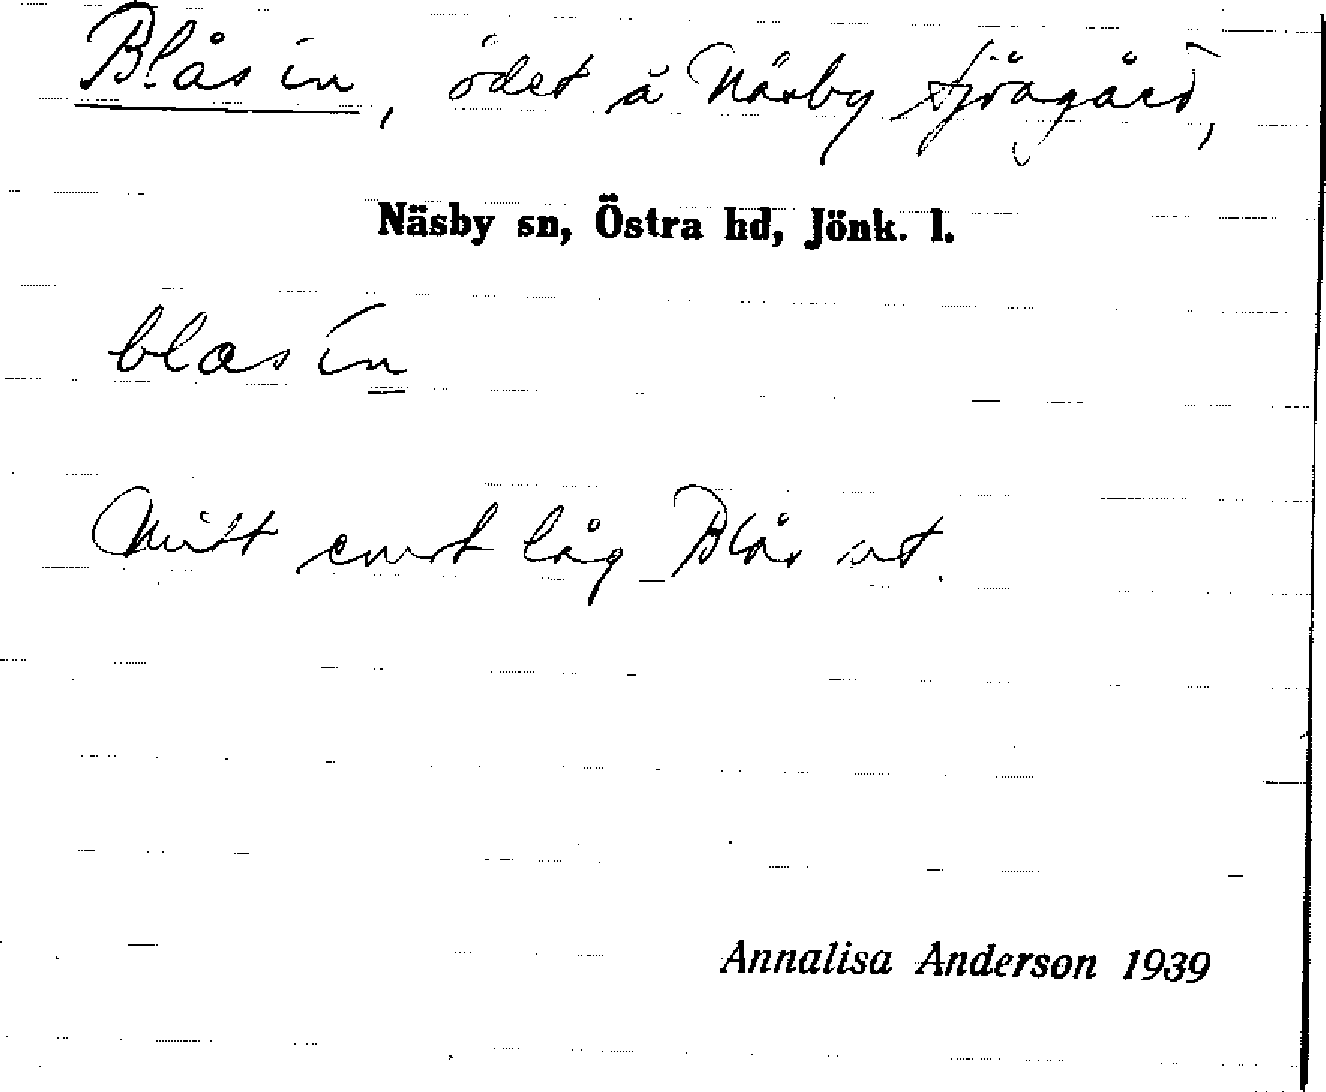 Blås in, ödet å Näsby sjögård,
Näsby sn, Östra hd, Jönk. l.
blas in
Mitt emot låg Blås ut.
Annalisa Anderson 1939